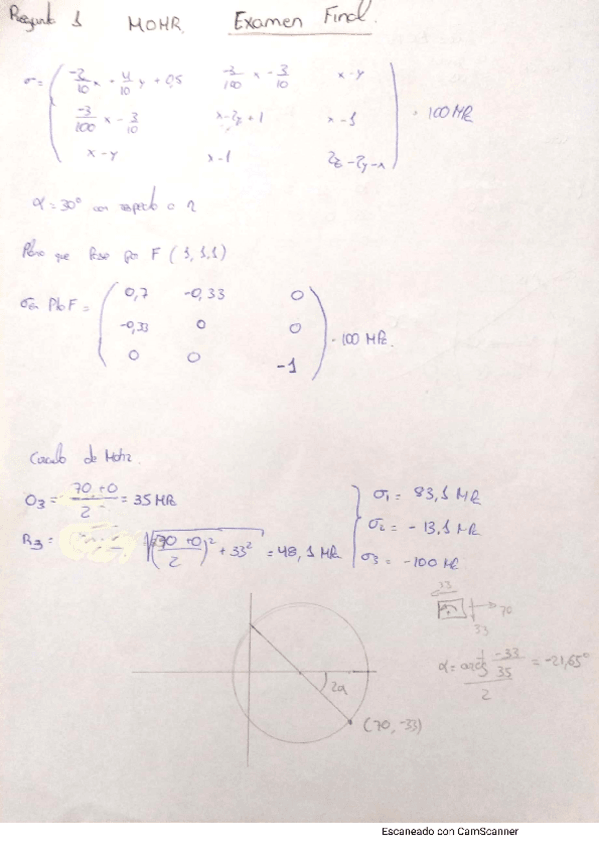 Pregunta 1 MOHR Examen Final.
σ = ( -3/10 x - 4/10 y + 0,5   -3/100 x - 3/10   x-y
-3/100 x - 3/10   x-2z+1   x-1
x-y   x-1   2z-2y-x ) · 100 MPa
α = 30° con respecto a
Plano que pasa por F (1,1,1)
σ en Pto F = ( 0,7   -0,33   0
-0,33   0   0
0   0   -1 ) · 100 MPa.
Circulo de Mohr.
O3 = 70+0/2 = 35 MPa
R3 = √((70+0/2)² + 33²) = 48,1 MPa
σ1 = 83,1 MPa
σ2 = -13,1 MPa
σ3 = -100 MPa
33
70
33
α = arctg -33/35 / 2 = -21,65°
2α
(70, -33)
Escaneado con CamScanner